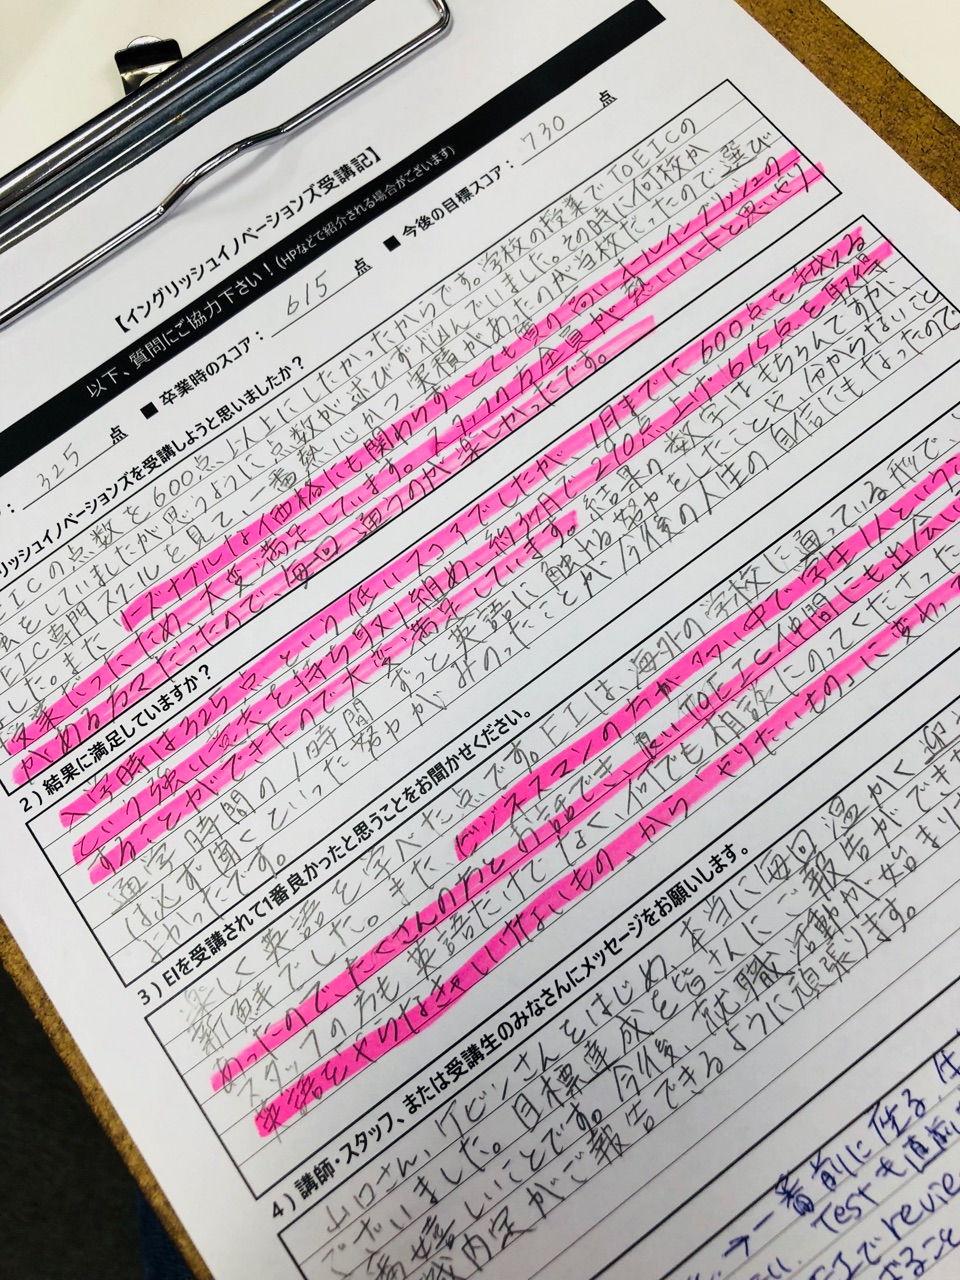 【イングリッシュイノベーションズ受講記】
以下、質問にご協力下さい！(HPなどで紹介される場合がございます)
: 325 点 ■ 卒業時のスコア： 615 点 ■ 今後の目標スコア： 730 点
リッシュイノベーションズを受講しようと思いましたか？
EICの点数を600点以上にしたかったからです。学校の授業でTOEICの
をしていましたが思うように点数が延びず悩んでいました。その時に何校か
EIC専門スクールを見て、一番熱心かつ実績があったのが当校だったので選び
した。また、リーズナブルな価格にも関わらず、とても質の高いオールイングリッシュの
授業だったため、大変満足しています。スタッフの方全員が熱い心と思いやり
がある方々だったので、毎回通うのが楽しかったです。
2）結果に満足していますか？
入学時は325点という低いスコアでしたが、1月までに600点を越える
という強い意志を持ち取り組め、約3ヶ月で290点上げ、615点を取得
することができたので大変満足しています。結果の数字はもちろんですが、
通学時間の1時間ずっと英語に触れる努力をしたことや分からないこと
は必ず聞くといった努力がみのったことが今後の人生の自信にもなったので
よかったです。
3）EIを受講されて1番良かったと思うことをお聞かせください。
楽しく英語を学べた点です。EIは、海外の学校に通っている形で、
新鮮でした。また、ビジネスマンの方が多い中で、学生1人という
あったので、たくさんの方とお話でき、良いTOEIC仲間にも出会い
スタッフの方も英語だけでなく、何でも相談にのってくださった
英語をやらなきゃいけないもの、から、やりたいもの、に変わっ
4）講師・スタッフ、または受講生のみなさんにメッセージをお願いします。
山口さん、ケビンさんをはじめ、本当に毎回温かく迎
ございました。目標達成を皆さんにご報告ができ
嬉しいことです。今後、就職活動が始まり
内定がご報告できるように頑張ります。
→一番前に座る、
Testも直前
でreview